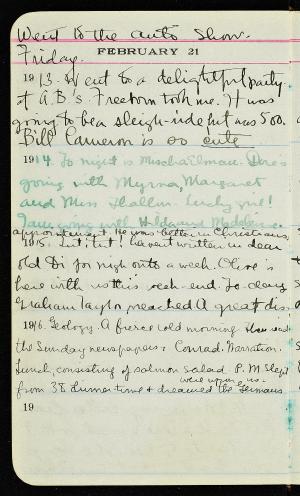 Went to the auto show.
Friday.
FEBRUARY 21
1913. Went to a delightful party
at A.B.'s Freeborn took me. It was
going to be a sleigh-ride but was 500.
Bill Cameron is so cute
1914. To night is Mischa Elman. Dere's
going with Myrna, Margaret
and Miss Hallin. Lucky girl!
I am going with Hildagund
He was better in Christians,
1915. Tut, tut! havent written in dear
old Di for nigh onto a week. Olive's
here with us this week-end. To-day
Graham Taylor preached. A great dis
1916. Geology. A fierce cold morning
the Sunday newspapers. Conrad. Narration.
Lunch, consisting of salmon salad. P.M. slept
were upon us.
from 3 dinner time & dreamed the Germans
19